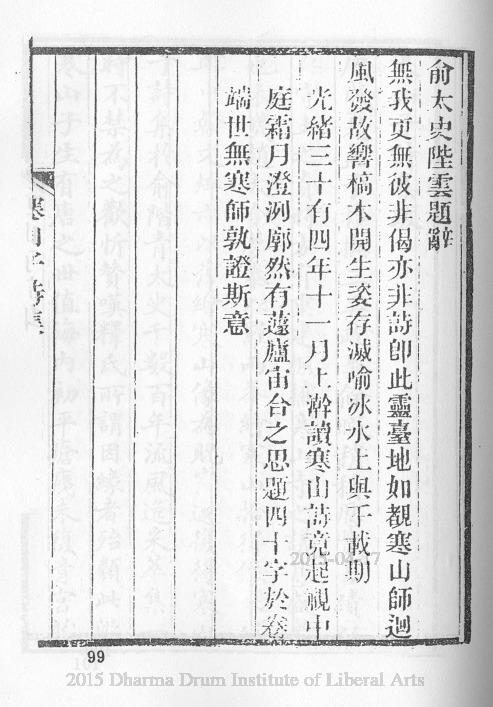 俞太史陛雲題辭
無我更無彼非偈亦非詩卽此靈臺地如覩寒山師迴
風發故響槁木開生姿存滅喻冰水上與千載期
光緒三十有四年十一月上澣讀寒山詩竟起視中
庭霜月澄洌廓然有蘧廬宙合之思題四十字於卷
端世無寒師孰證斯意
寒山子詩集
99
2015 Dharma Drum Institute of Liberal Arts